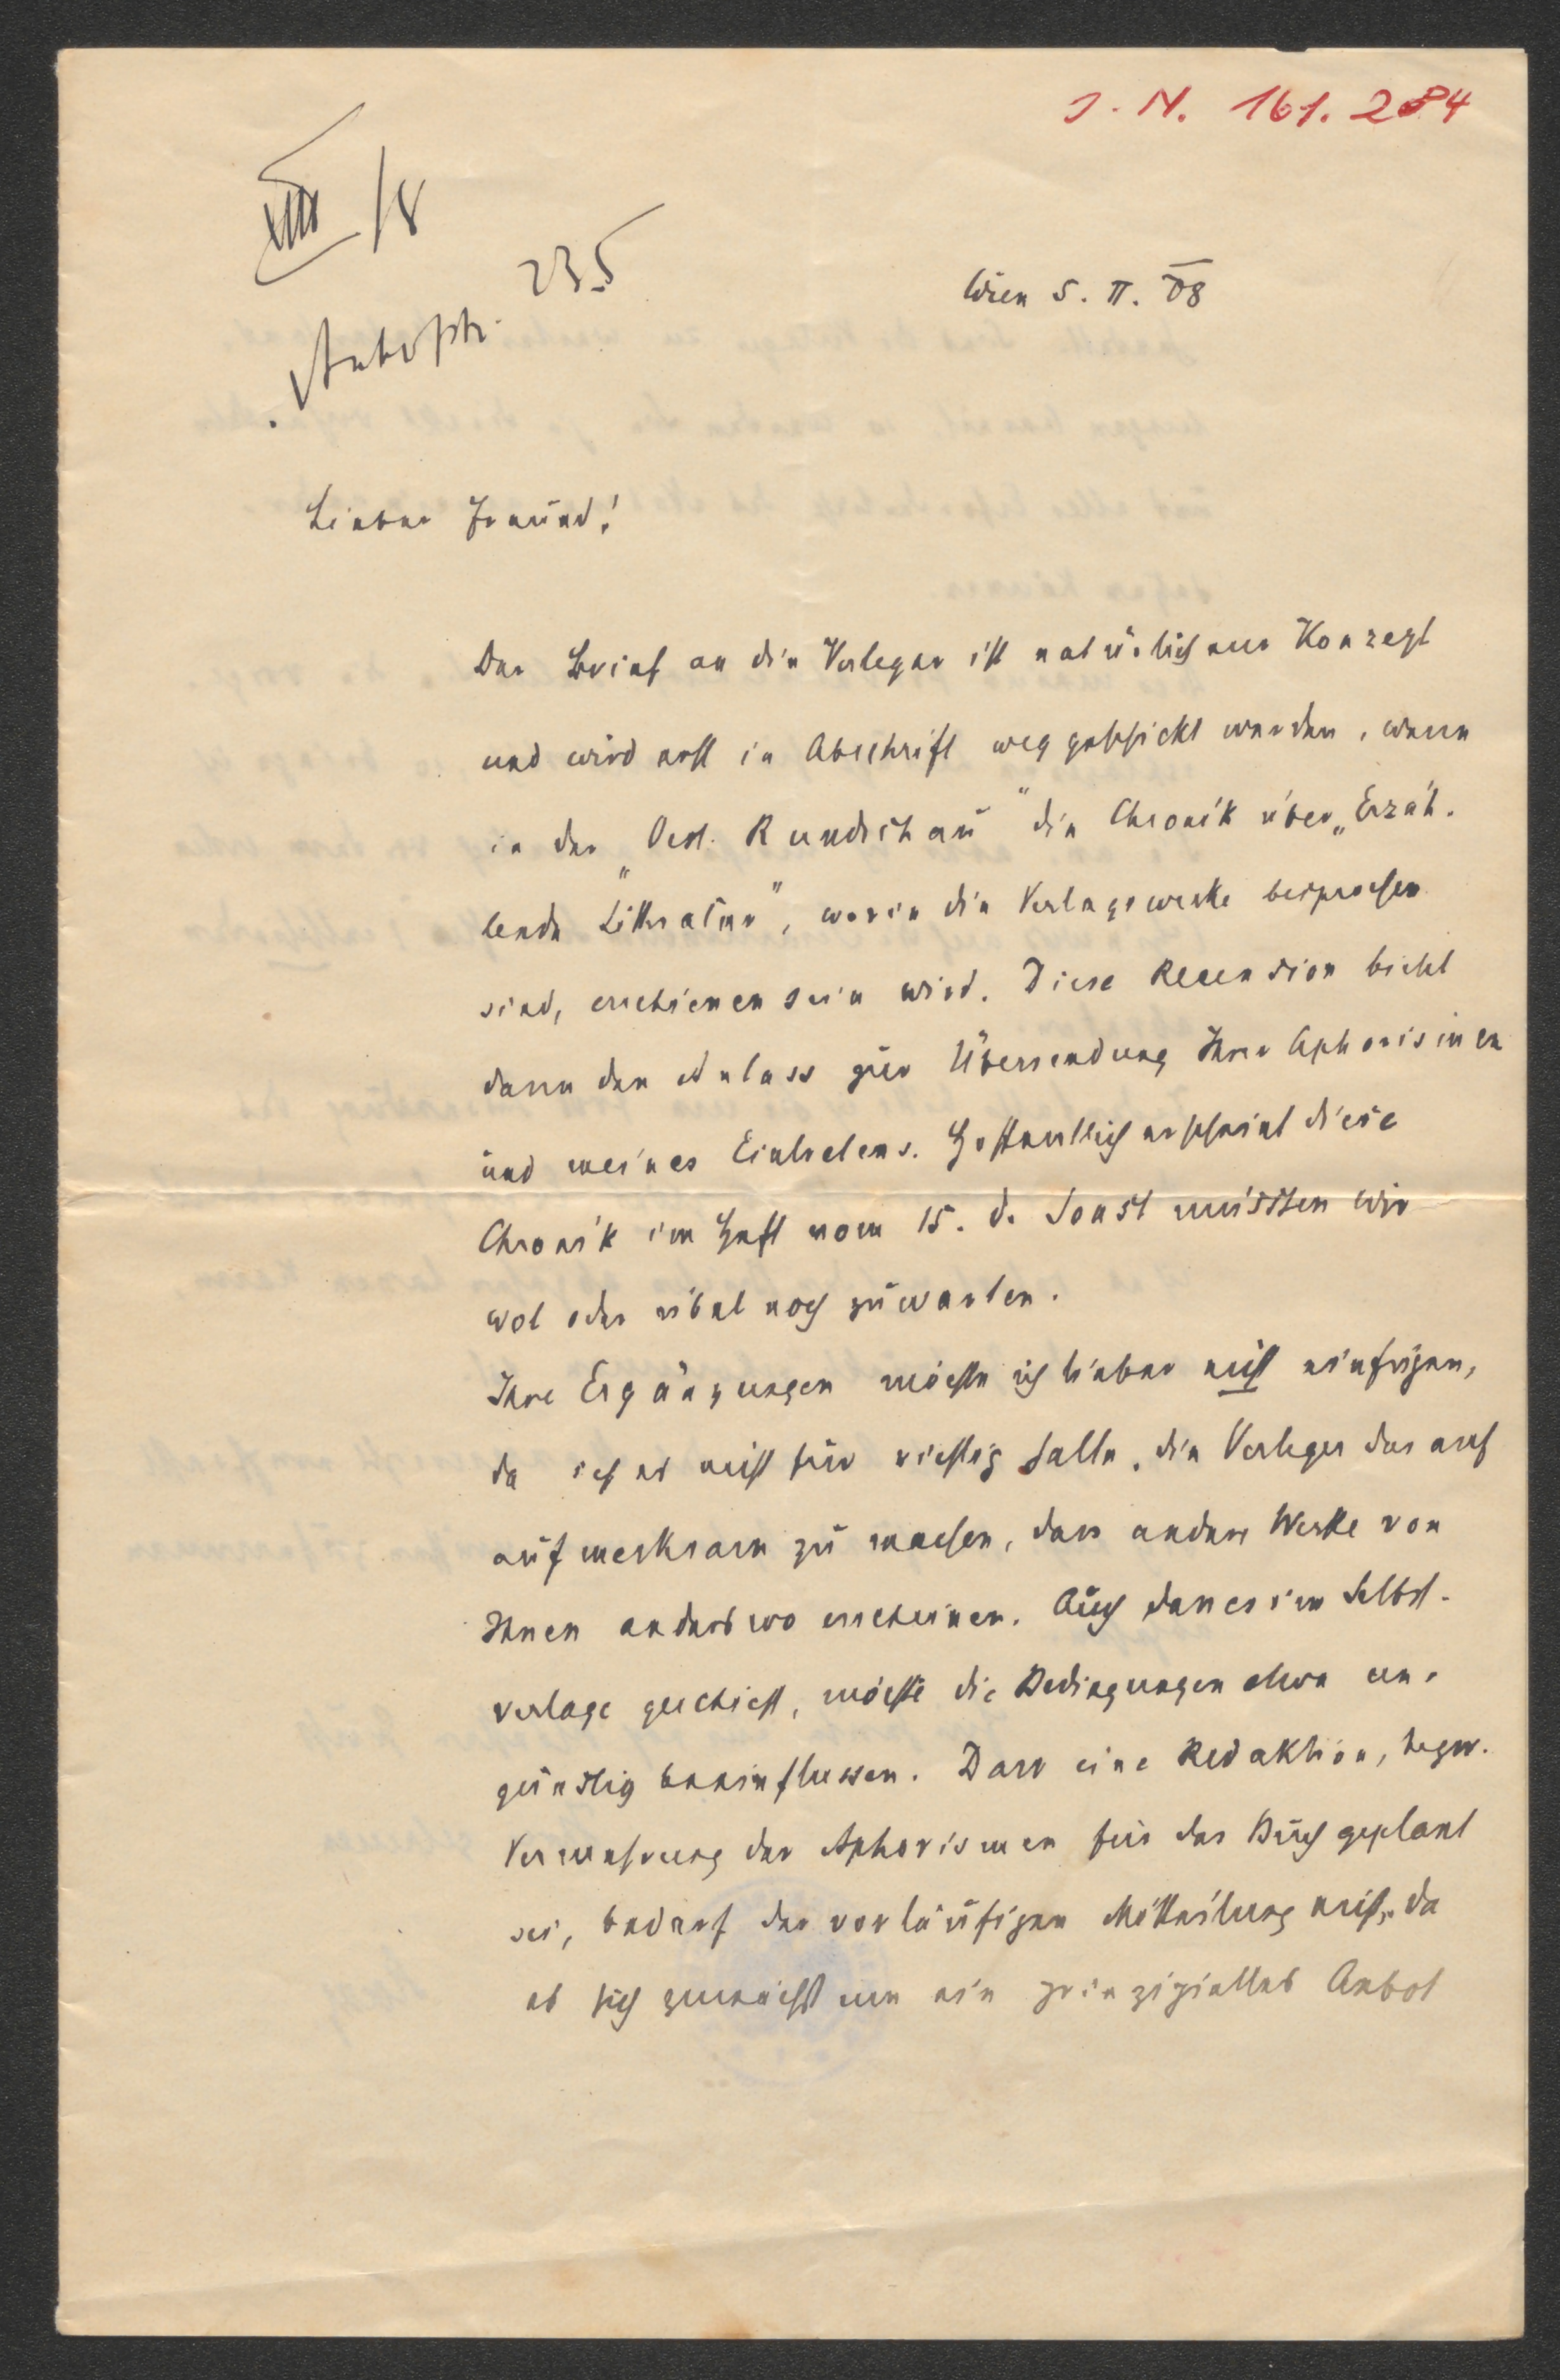 I. N. 161.284
VIII/8
235
Wien 5. II. 08
Lieber Freund!
Der Brief an die Verleger ist natürlich nur Konzept
und wird erst in Abschrift weggeschickt werden, wenn
in der "Oest. Rundschau" die Chronik über „Erzäh-
lende Litteratur", worin die Verlagswerke besprochen
sind, erschienen sein wird. Diese Recension bietet
dann den Anlass zur Übersendung Ihrer Aphorismen
und meines Eintretens. Hoffentlich erscheint diese
Chronik im Heft vom 15. d. Sonst müssten wir
wol oder übel noch zuwarten.
Ihre Ergänzungen möchte ich lieber nicht einfügen,
da ich es nicht für richtig halte, die Verleger darauf
aufmerksam zu machen, dass andere Werke von
Ihnen anderswo erscheinen. Auch dass es im Selbst-
verlage geschieht, möchte die Bedingungen etwa un-
günstig beeinflussen. Dass eine Redaktion, bezw.
Vermehrung der Aphorismen für das Buch geplant
sei, bedarf der vorläufigen Mitteilung nicht, da
es sich zunächst um ein prinzipielles Anbot